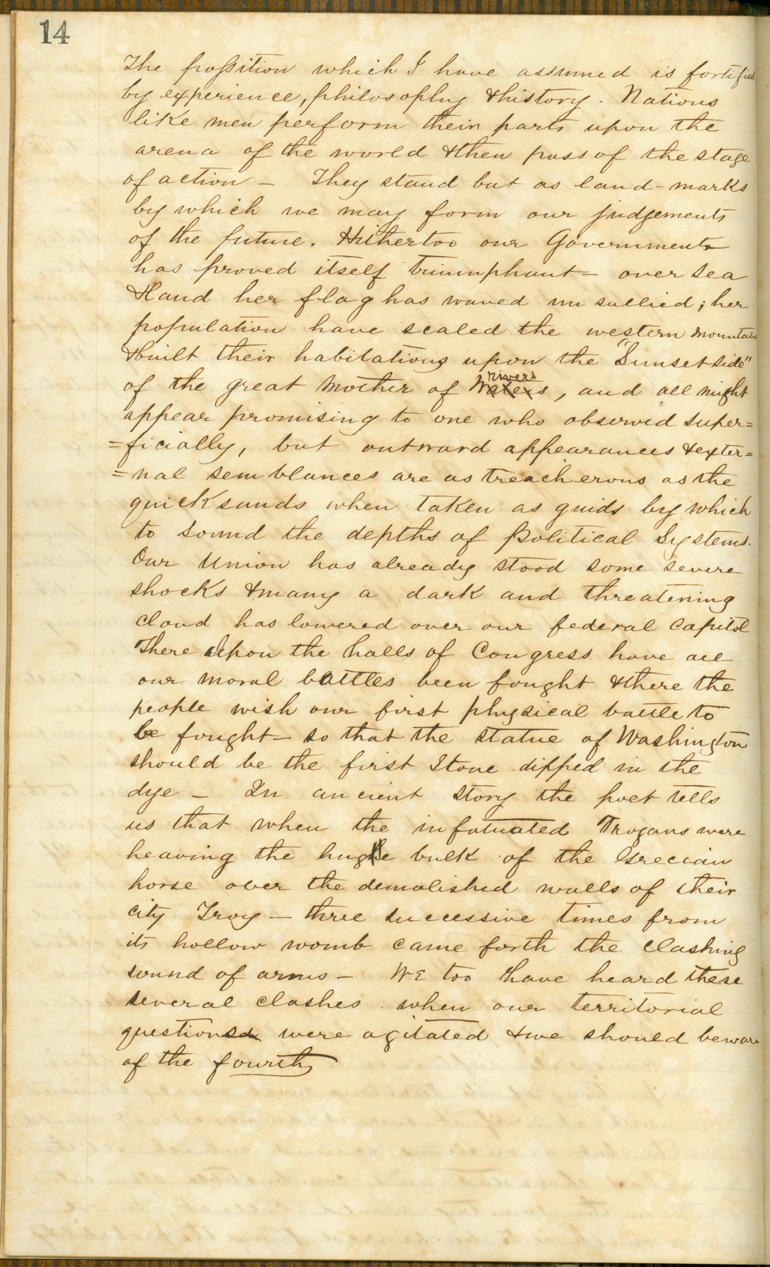 14
The possition which I have assumed is fortified
by experience, philosophy & history. Nations
like men perform their parts upon the
arena of the world & then pass of the stage
of action — They stand but as land-marks
by which we may form our judgements
of the future. Hithertoo our Governments
has proved itself triumphant — over sea
& land her flag has waved unsullied; her
population have scaled the western mountains
& built their habitations upon the "Sunset side"
of the great Mother of Waters rivers, and all might
appear promising to one who observed super=
=ficially, but outward appearances & exter=
=nal semblances are as treacherous as the
quicksands when taken as guids by which
to sound the depths of Political Systems.
Our Union has already stood some severe
shocks & many a dark and threatening
cloud has lowered over our federal Capitol
There Upon the halls of Congress have all
our moral battles been fought & there the
people wish our first physical battle to
be fought — so that the statue of Washington
should be the first Stone dipped in the
dye — In ancient story the poet tells
us that when the infatuated Trojans were
heaving the huge bulk of the Grecian
horse over the demolished walls of their
city Troy — three successive times from
its hollow womb came forth the clashing
sound of arms — We too have heard these
several clashes when our territorial
questions were agitated & we should beware
of the fourth